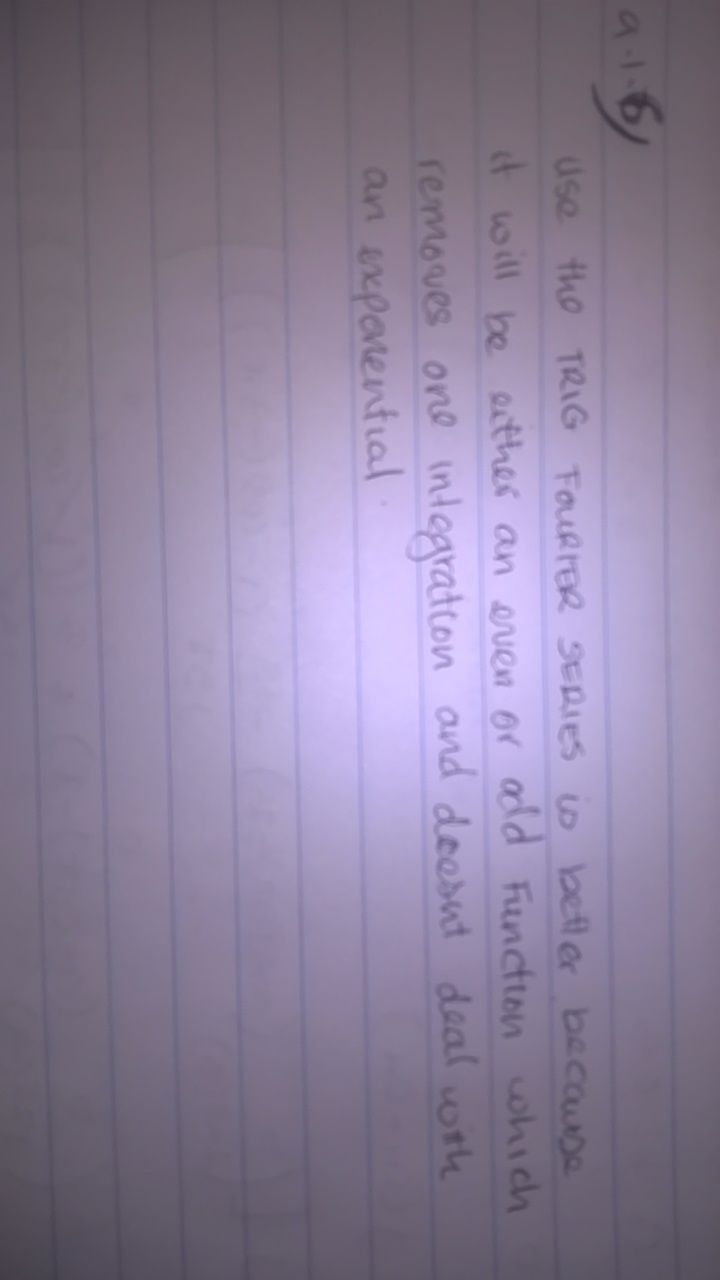 a.1.6)
Use the TRIG FOURIER SERIES is better because
it will be either an even or odd Function which
removes one integration and doesnt deal with
an exponential.